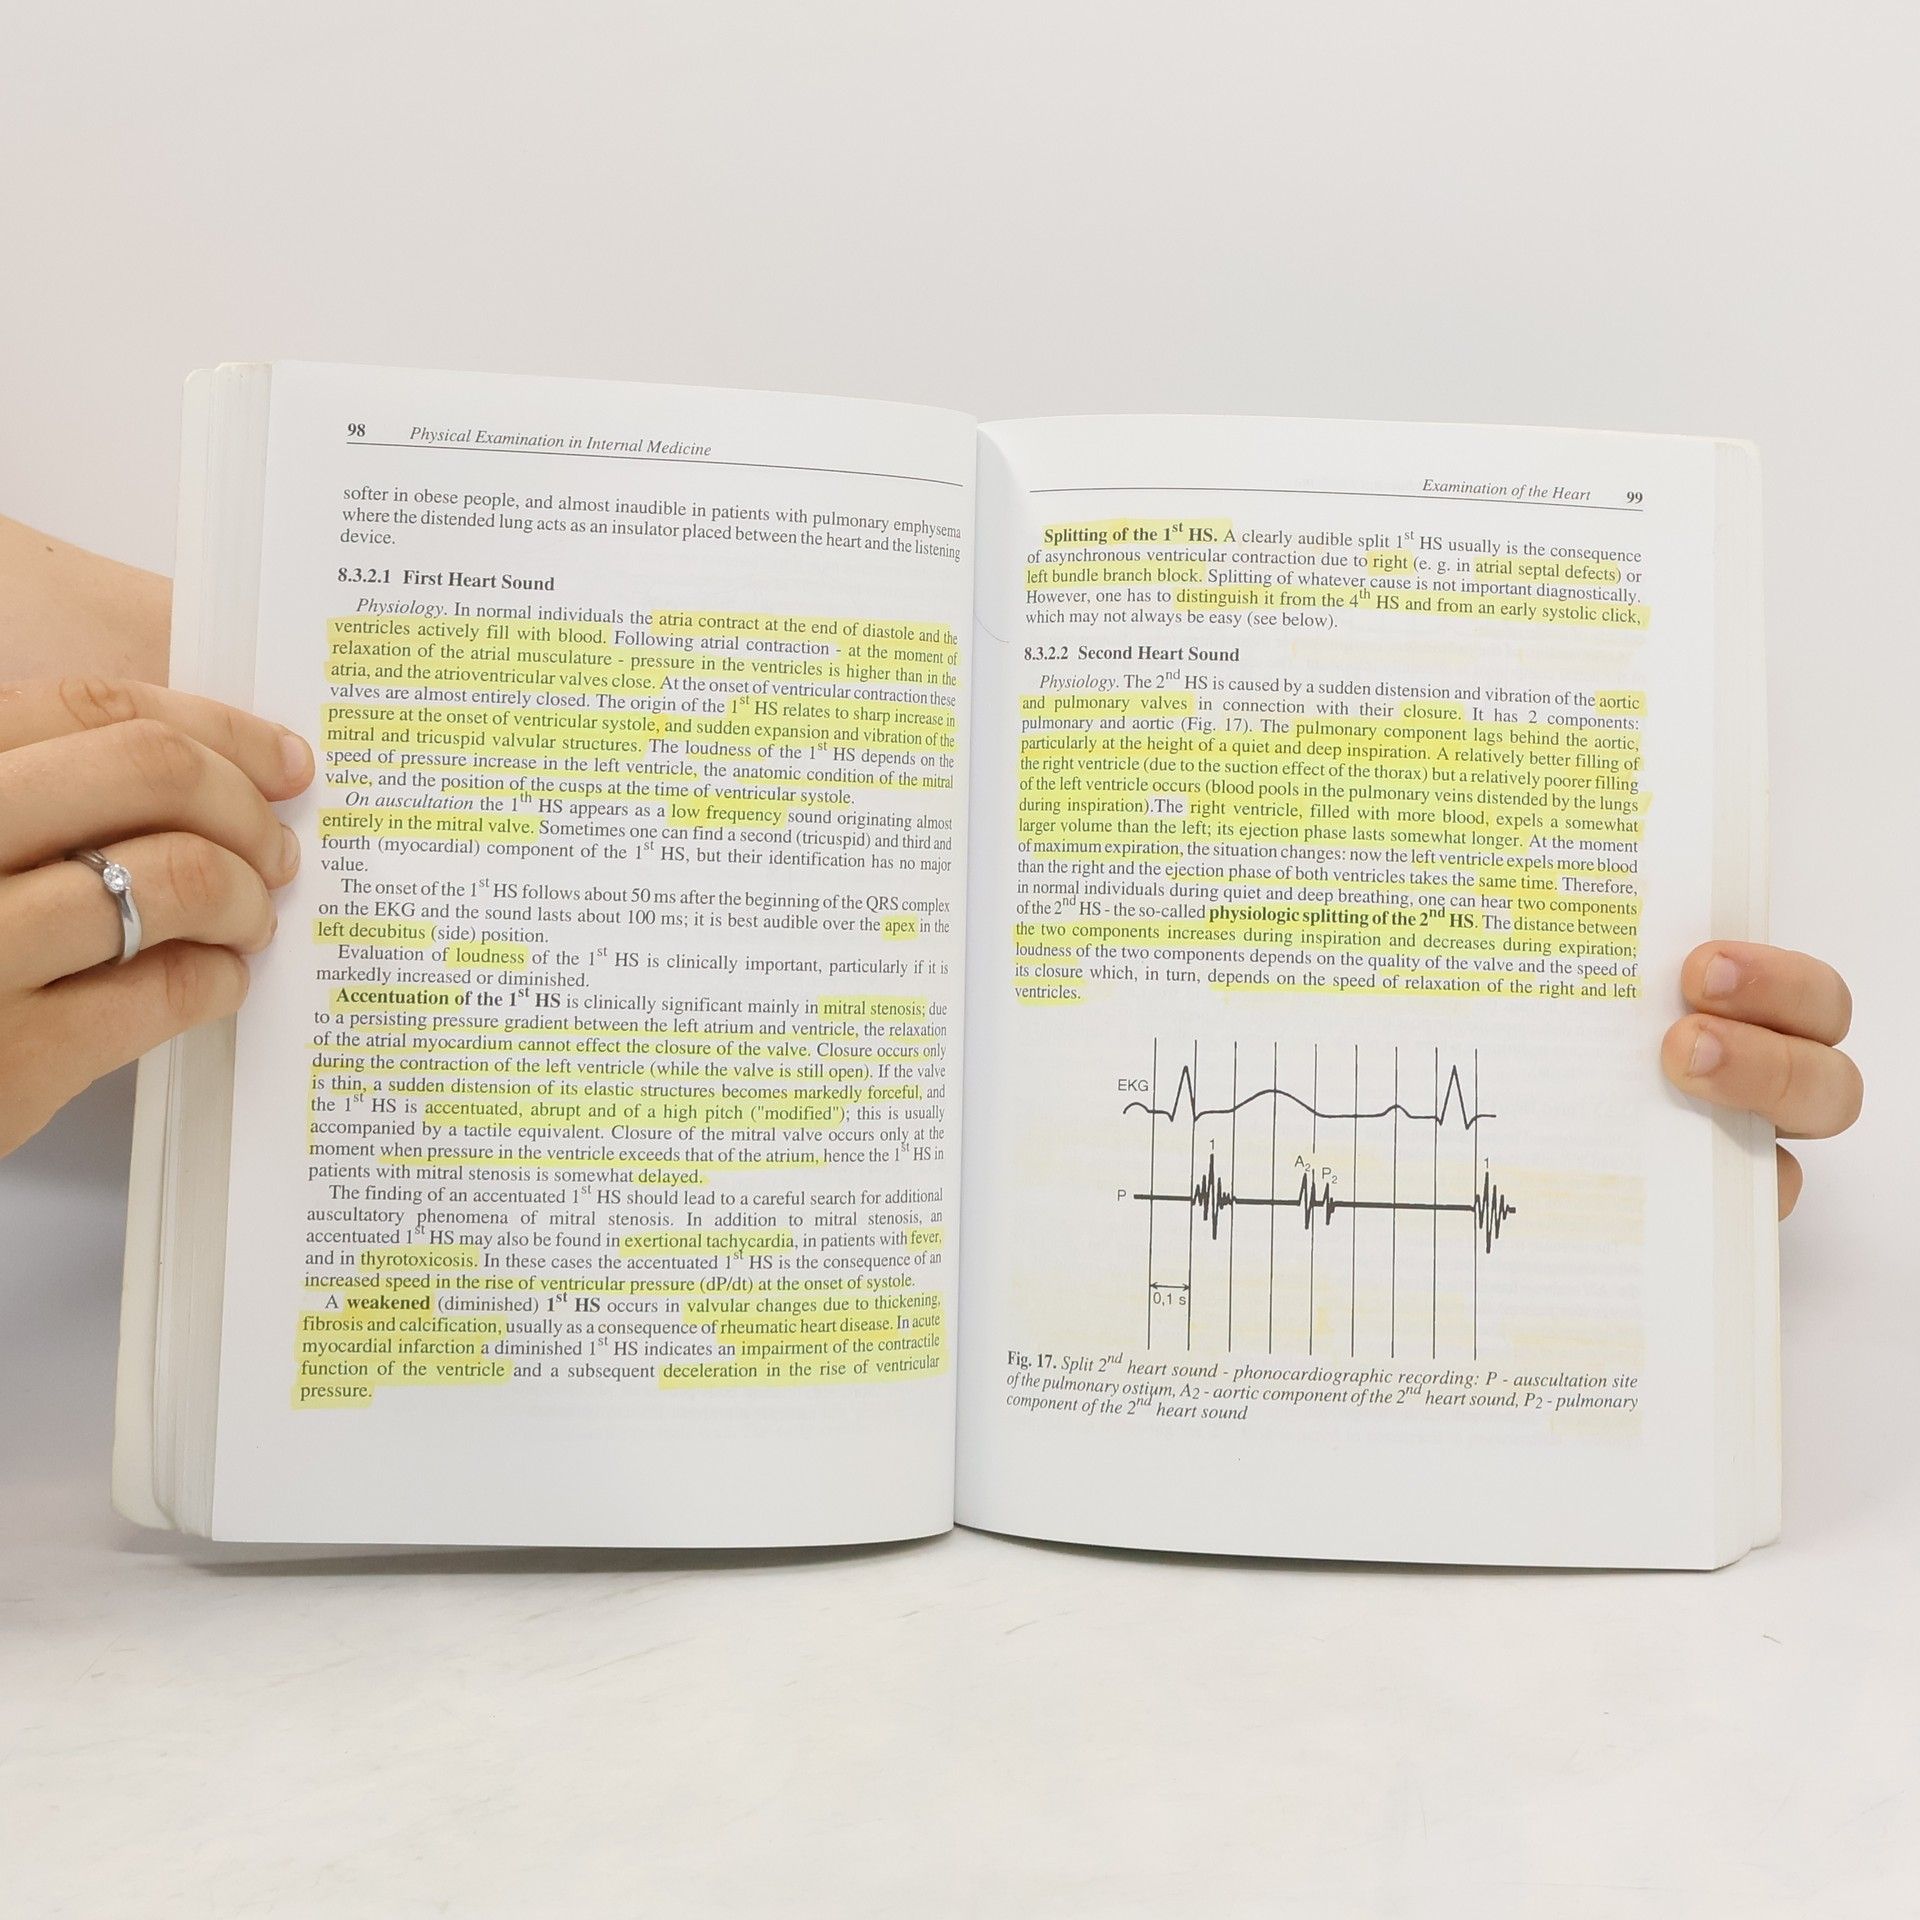 98 Physical Examination in Internal Medicine
softer in obese people, and almost inaudible in patients with pulmonary emphysema
where the distended lung acts as an insulator placed between the heart and the listening
device.
8.3.2.1 First Heart Sound
Physiology. In normal individuals the atria contract at the end of diastole and the
ventricles actively fill with blood. Following atrial contraction - at the moment of
relaxation of the atrial musculature - pressure in the ventricles is higher than in the
atria, and the atrioventricular valves close. At the onset of ventricular contraction these
valves are almost entirely closed. The origin of the 1st HS relates to sharp increase in
pressure at the onset of ventricular systole, and sudden expansion and vibration of the
mitral and tricuspid valvular structures. The loudness of the 1st HS depends on the
speed of pressure increase in the left ventricle, the anatomic condition of the mitral
valve, and the position of the cusps at the time of ventricular systole.
On auscultation the 1th HS appears as a low frequency sound originating almost
entirely in the mitral valve. Sometimes one can find a second (tricuspid) and third and
fourth (myocardial) component of the 1st HS, but their identification has no major
value.
The onset of the 1st HS follows about 50 ms after the beginning of the QRS complex
on the EKG and the sound lasts about 100 ms; it is best audible over the apex in the
left decubitus (side) position.
Evaluation of loudness of the 1st HS is clinically important, particularly if it is
markedly increased or diminished.
Accentuation of the 1st HS is clinically significant mainly in mitral stenosis; due
to a persisting pressure gradient between the left atrium and ventricle, the relaxation
of the atrial myocardium cannot effect the closure of the valve. Closure occurs only
during the contraction of the left ventricle (while the valve is still open). If the valve
is thin, a sudden distension of its elastic structures becomes markedly forceful, and
the 1st HS is accentuated, abrupt and of a high pitch ("modified"); this is usually
accompanied by a tactile equivalent. Closure of the mitral valve occurs only at the
moment when pressure in the ventricle exceeds that of the atrium, hence the 1st HS in
patients with mitral stenosis is somewhat delayed.
The finding of an accentuated 1st HS should lead to a careful search for additional
auscultatory phenomena of mitral stenosis. In addition to mitral stenosis, an
accentuated 1st HS may also be found in exertional tachycardia, in patients with fever,
and in thyrotoxicosis. In these cases the accentuated 1st HS is the consequence of an
increased speed in the rise of ventricular pressure (dP/dt) at the onset of systole.
A weakened (diminished) 1st HS occurs in valvular changes due to thickening,
fibrosis and calcification, usually as a consequence of rheumatic heart disease. In acute
myocardial infarction a diminished 1st HS indicates an impairment of the contractile
function of the ventricle and a subsequent deceleration in the rise of ventricular
pressure.
Examination of the Heart 99
Splitting of the 1st HS. A clearly audible split 1st HS usually is the consequence
of asynchronous ventricular contraction due to right (e. g. in atrial septal defects) or
left bundle branch block. Splitting of whatever cause is not important diagnostically.
However, one has to distinguish it from the 4th HS and from an early systolic click,
which may not always be easy (see below).
8.3.2.2 Second Heart Sound
Physiology. The 2nd HS is caused by a sudden distension and vibration of the aortic
and pulmonary valves in connection with their closure. It has 2 components:
pulmonary and aortic (Fig. 17). The pulmonary component lags behind the aortic,
particularly at the height of a quiet and deep inspiration. A relatively better filling of
the right ventricle (due to the suction effect of the thorax) but a relatively poorer filling
of the left ventricle occurs (blood pools in the pulmonary veins distended by the lungs
during inspiration).The right ventricle, filled with more blood, expels a somewhat
larger volume than the left; its ejection phase lasts somewhat longer. At the moment
of maximum expiration, the situation changes: now the left ventricle expels more blood
than the right and the ejection phase of both ventricles takes the same time. Therefore,
in normal individuals during quiet and deep breathing, one can hear two components
of the 2nd HS - the so-called physiologic splitting of the 2nd HS. The distance between
the two components increases during inspiration and decreases during expiration;
loudness of the two components depends on the quality of the valve and the speed of
its closure which, in turn, depends on the speed of relaxation of the right and left
ventricles.
EKG
1 A2 P2 1
P
0,1 s
Fig. 17. Split 2nd heart sound - phonocardiographic recording: P - auscultation site
of the pulmonary ostium, A2 - aortic component of the 2nd heart sound, P2 - pulmonary
component of the 2nd heart sound